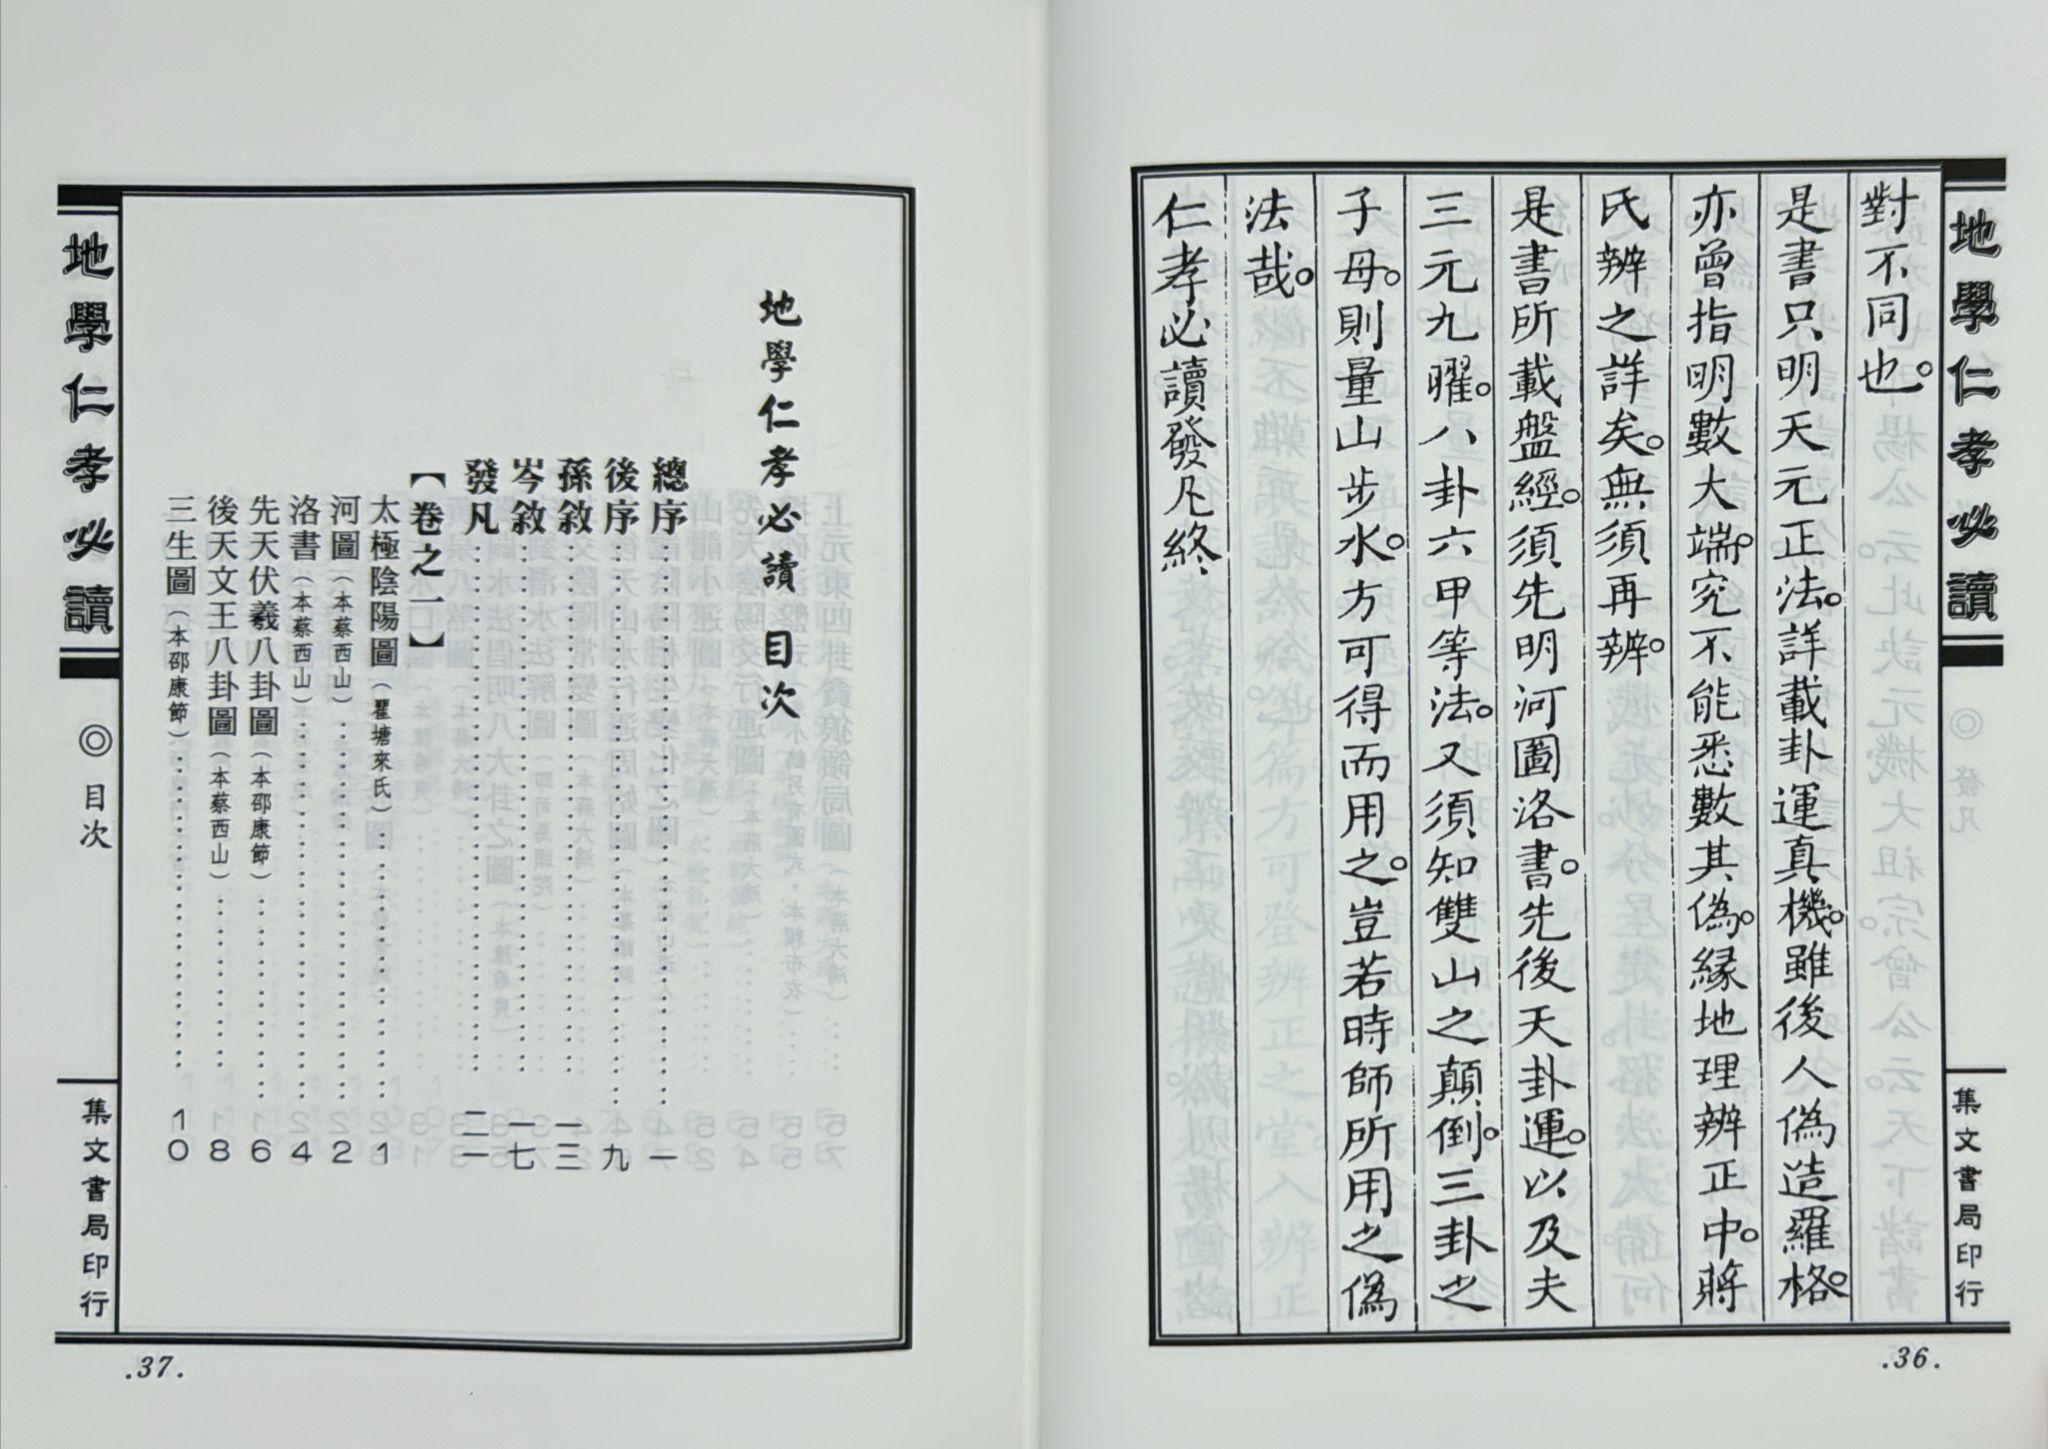 地學仁孝必讀
◎發凡
集文書局印行
對不同也。
是書只明天元正法。詳載卦運真機。雖後人偽造羅格。
亦曾指明數大端。究不能悉數其偽。緣地理辨正中。蔣
氏辨之詳矣。無須再辨。
是書所載盤經。須先明河圖洛書。先後天卦運。以及夫
三元九曜。八卦六甲等法。又須知雙山之顛倒。三卦之
子母。則量山步水。方可得而用之。豈若時師所用之偽
法哉。
仁孝必讀發凡終
.36.
地學仁孝必讀
◎目次
集文書局印行
地學仁孝必讀 目次
總序……一
後序……九
孫敘……一三
岑敘……一七
發凡……二一
【卷之一】
太極陰陽圖(瞿塘來氏)……1
河圖(本蔡西山)……2
洛書(本蔡西山)……4
先天伏羲八卦圖(本邵康節)……6
後天文王八卦圖(本蔡西山)……8
三生圖(本邵康節)……10
.37.